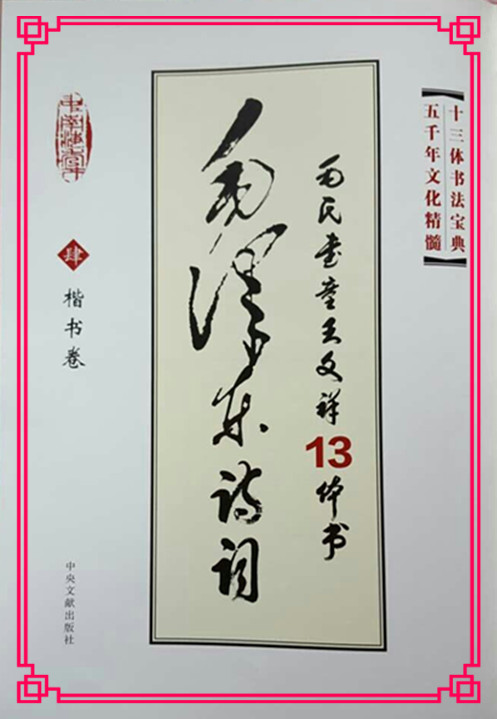 十三体书法宝典
五千年文化精髓
为民書童王文祥13体书
毛泽东诗词
肆
楷书卷
中央文献出版社